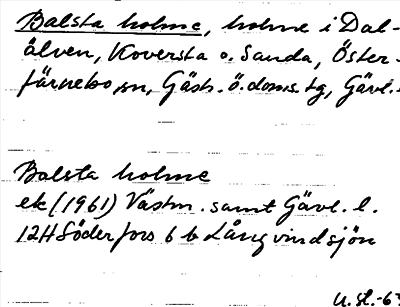 Balsta holme, holme i Dal-
älven, Koversta o. Sanda, Öster-
färnebo sn, Gästr. ö. doms. tg, Gävl. l
Balsta holme
ek (1961) Västm. samt Gävl. l.
12H Söderfors 6 b Långvindsjön
U. Sl. -63